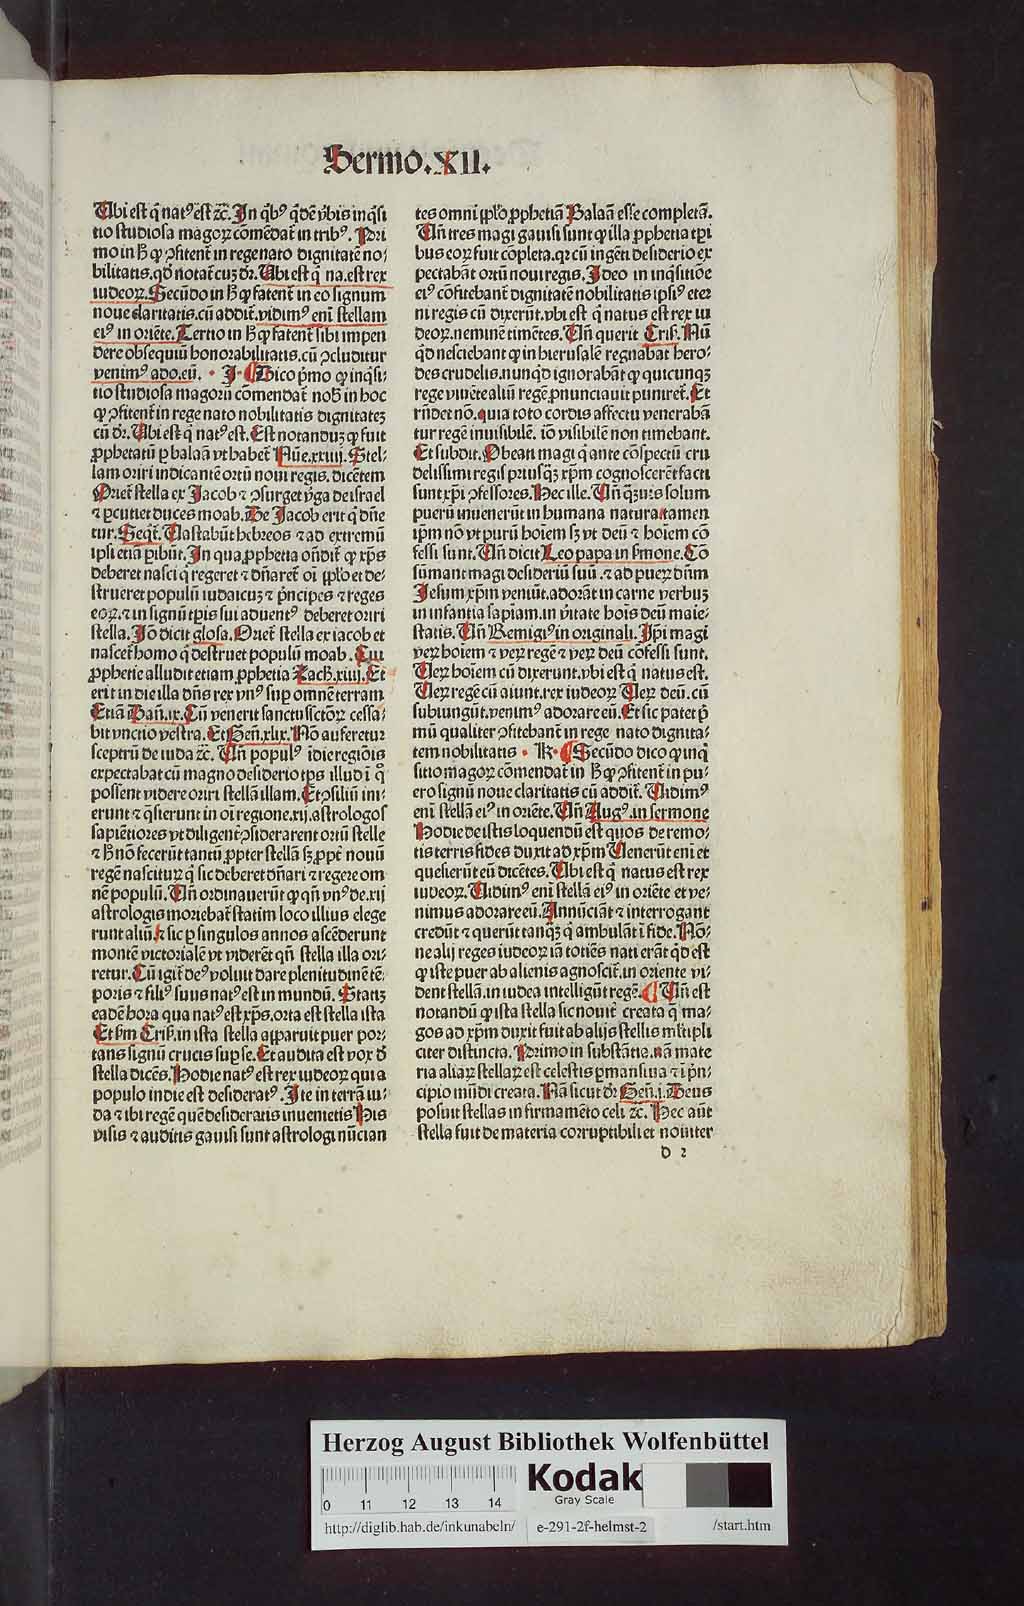 Sermo.XII.
Ubi est q̄ natꝰ est ⁊c̄. In qͥbꝰ qͥdē v̓bis inqͥsi
tio studiosa magoꝝ cōmēdat̄ in tribꝰ. Pri
mo in hͦ ꝙ ꝯfitent̄ in rege nato dignitatē no⸗
bilitatis. qd̓ notat̄ cuꝫ dr̄. Ubi est q̄ na. est rex
iudeoꝝ. Secūdo in hͦ ꝙ fatent̄ in eo signum
noue claritatis. cū addit̄. vidimꝰ eni̅ stellam
eiꝰ in oriēte. Tertio in hͦ ꝙ fatent̄ sibi impen
dere obsequiū honorabilitatis. cū ꝯcluditur
venimꝰ ado. eū. · J· ¶ Dico p̄mo ꝙ inqͥsi⸗
tio studiosa magoꝝ cōmendat̄ nob̓ in hoc
ꝙ ꝯfitent̄ in rege nato nobilitatis dignitateꝫ
cū dr̄. Ubi est q̄ natꝰ est. Est notanduꝫ ꝙ fuit
ꝓphetatū ꝑ balaā vt habet̄ Nūe. xxiiij. Stel⸗
lam oriri indicantē ortū noui regis. dicētem
Oriet̄ stella ex Jacob ⁊ ꝯsurget v̓ga de israel
⁊ ꝑcutiet duces moab. De Jacob erit q̄ dn̄e
tur. Seqͥt̄. Uastabūt hebreos ⁊ ad extremū
ipsi etiā ꝑibūt. In qua ꝓphetia on̄dit̄ ꝙ xp̄s
deberet nasci q̄ regeret ⁊ dn̄aret̄ oī pplo et de⸗
strueret populū iudaicuꝫ ⁊ pͥncipes ⁊ reges
eoꝝ. ⁊ in signū tp̄is sui aduentꝰ deberet oriri
stella. Jō dicit glosa. Oriet̄ stella ex iacob et
nascet̄ homo q̄ destruet populū moab. Cui
ꝓphetie alludit etiam ꝓphetia Zach. xiiij. Et
erit in die illa dn̄s rex vnꝰ suꝑ omnē terram
Etiā Dan̄. ix. Cū venerit sanctus sctōꝝ cessa⸗
bit vnctio vestra. Et Gen̄. xlix. Nō auferetur
sceptrū de iuda ⁊c̄. Un̄ populꝰ īdie regiōis
expectabat cū magno desiderio tp̄s illud ī qͦ
possent videre oriri stellā illam. Et ꝯsiliū ini⸗
erunt ⁊ q̄sierunt in oī regione. xij. astrologos
sapiētiores vt diligent̄ ꝯsiderarent ortū stelle
⁊ hͦ nō fecerūt tantū ꝓpter stellā sꝫ ꝓpt̄ nouū
regē nasciturꝝ q̄ sic deberet dn̄ari ⁊ regere om
nē populū. Un̄ ordinauerūt ꝙ qn̄ vnꝰ de. xij
astrologis moriebat̄ statim loco illius elege
runt aliū. ⁊ sic ꝑ singulos annos ascēderunt
montē victorialē vt viderēt qn̄ stella illa ori⸗
retur. Cū igit̄ deꝰ voluit dare plenitudinē tē⸗
poris ⁊ filiꝰ suus natꝰ est in mundū. Statiꝫ
eadē hora qua natꝰ est xp̄s. orta est stella ista
Et ẜm Criſ̓. in ista stella apparuit puer por⸗
tans signū crucis sup se. Et audita est vox d̓
stella dicēs. Hodie natꝰ est rex iudeoꝝ qui a
populo indie est desideratꝰ. Ite in terrā iu⸗
da ⁊ ibi regē quē desideratis inuenietis His
visis ⁊ auditis gauisi sunt astrologi nūcian
tes omni pplo ꝓphetiā Balaā esse completā.
Un̄ tres magi gauisi sunt ꝙ illa ꝓphetia tp̄i
bus eoꝝ fuit cōpleta. qꝛ cū ingēti desiderio ex
pectabāt ortū noui regis. Ideo in inqͥsitiōe
eiꝰ cōfitebant̄ dignitatē nobilitatis ipsiꝰ eter
ni regis cū dixerūt. vbi est q̄ natus est rex iu
deoꝝ. neminē timētes. Un̄ querit Criſ̓. Nū
qd̓ nesciebant ꝙ in hierusalē regnabat hero⸗
des crudelis. nunqͥd ignorabāt ꝙ quicunqꝫ
rege viuēte aliū regē ꝓnunciauit puniret̄. Et
rn̄det nō. quia toto cordis affectu venerabā
tur regē inuisibilē. iō visibilē non timebant.
Et subdit. O beati magi q̄ ante cōspectū cru
delissimi regis priusqꝫ xp̄m cognoscerēt facti
sunt xp̄i ꝯfessores. Hec ille. Un̄ qꝫuis solum
puerū inuenerūt in humana natura tamen
ip̄m nō vt purū hoīem sꝫ vt deū ⁊ hoīem cō
fessi sunt. Un̄ dicit Leo papa in ẜmone. Cō
sūmant magi desideriū suū. ⁊ ad pueꝝ dn̄m
Jesum xp̄m veniūt. adorāt in carne verbuꝫ
in infantia sapīam. in v̓tate hoīs deū maie⸗
statis. Un̄ Remigiꝰ in originali. Ip̄i magi
veꝝ hoīem ⁊ veꝝ regē ⁊ veꝝ deū cōfessi sunt.
Ueꝝ hoīem cū dixerunt. vbi est q̄ natus est.
Ueꝝ regē cū aiunt. rex iudeoꝝ Ueꝝ deū. cū
subiungūt. venimꝰ adorare eū. Et sic patet p̄
mū qualiter ꝯfitebant̄ in rege nato dignita⸗
tem nobilitatis · K· ¶ Secūdo dico ꝙ inqͥ
sitio magoꝝ cōmendat̄ in hͦ ꝙ ꝯfitent̄ in pu⸗
ero signū noue claritatis cū addit̄. Uidimꝰ
eni̅ stellā eiꝰ in oriēte. Un̄ Augꝰ. in sermone
Hodie de istis loquendū est quos de remo⸗
tis terris fides duxit ad xp̄m Uenerūt eni̅ et
quesierūt eū dicētes. Ubi est q̄ natus est rex
iudeoꝝ. Uidimꝰ eni̅ stellā eiꝰ in oriēte et ve⸗
nimus adorare eū. Annūciāt ⁊ interrogant
credūt ⁊ querūt tanqꝫ q̄ ambulāt ī fide. Nō⸗
ne alij reges iudeoꝝ iā totiēs nati erāt qd̓ est
ꝙ iste puer ab alienis agnoscit̄. in oriente vi⸗
dent stellā. in iudea intelligūt regē. ¶ Un̄ est
notandū ꝙ ista stella sic nouit̄ creata q̄ ma⸗
gos ad xp̄m duxit fuit ab alijs stellis mltipli
citer distincta. Primo in substātia. nā mate
ria aliaꝝ stellaꝝ est celestis ꝑmansiua ⁊ ī pͥn⸗
cipio mūdi creata. Nā sicut dr̄ Gen̄. j. Deus
posuit stellas in firmamēto celi ⁊c̄. Hec aūt
stella fuit de materia corruptibili et nouiter
d 2
Herzog August Bibliothek Wolfenbüttel
Kodak
Gray Scale
0 11 12 13 14
http://diglib.hab.de/inkunabeln/ e-291-2f-helmst-2 /start.htm